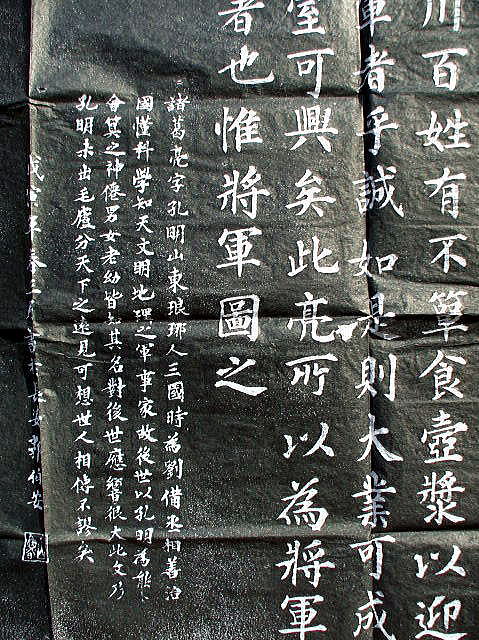 川百姓有不簞食壺漿以迎
軍者乎誠如是則大業可成
室可興矣此亮所以為將軍
者也惟將軍圖之
諸葛亮字孔明山東琅琊人三國時為劉備丞相善治
國懂科學知天文明地理之軍事家故後世以孔明為能
其之神男女老幼皆知其名對後世應響很大此文乃
孔明未出毛廬分天下之遠見可想世人相傳不謬矣
年春書伯安